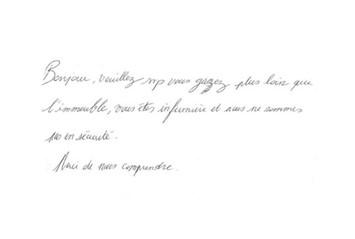 Bonjour, veuillez svp vous garez plus loin que
l'immeuble, vous êtes infirmière et nous ne sommes
pas en sécurité.
Merci de nous comprendre.